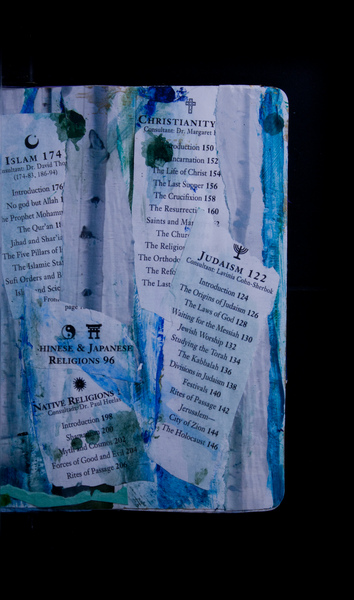 ISLAM 174
Consultant: Dr. David Tho
(174-83, 186-94)
Introduction 176
No god but Allah 1
he Prophet Mohamm
The Qur'an 1
Jihad and Shar'ia
The Five Pillars of I
The Islamic Sta
Sufi Orders and B
Islam and Scie
From
page
CHINESE & JAPANESE
RELIGIONS 96
NATIVE RELIGIONS
Consultant: Dr. Paul
Introduction 198
200
Myth and Cosmos 202
Forces of Good and Evil 204
Rites of Passage 206
CHRISTIANITY
Consultant: Dr. Margaret
Introduction 150
Incarnation 152
The Life of Christ 154
The Last Supper 156
The Crucifixion 158
The Resurrecti 160
Saints and Mar
The Chur
The Religio
The Orthodo
The Refo
The Last
JUDAISM 122
Consultant: Lavinia Cohn-Sherbok
Introduction 124
The Origins of Judaism 126
The Laws of God 128
Waiting for the Messiah 130
Jewish Worship 132
Studying the Torah 134
The Kabbalah 136
Divisions in Judaism 138
Festivals 140
Rites of Passage 142
Jerusalem—
City of Zion 144
The Holocaust 146